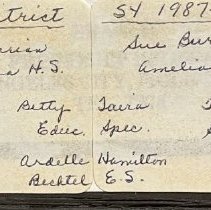 trict
SY 1987
rian Sue Bur
a H.S. Amelia
Betty Taira
Educ. Spec.
Ardelle Hamilton
Bechtel E.S.